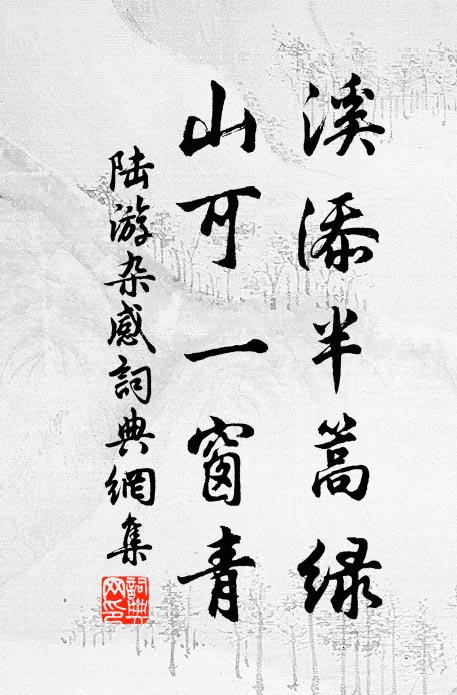 溪添半篙绿
山可一窗青
陆游杂感詞典網集
詞典